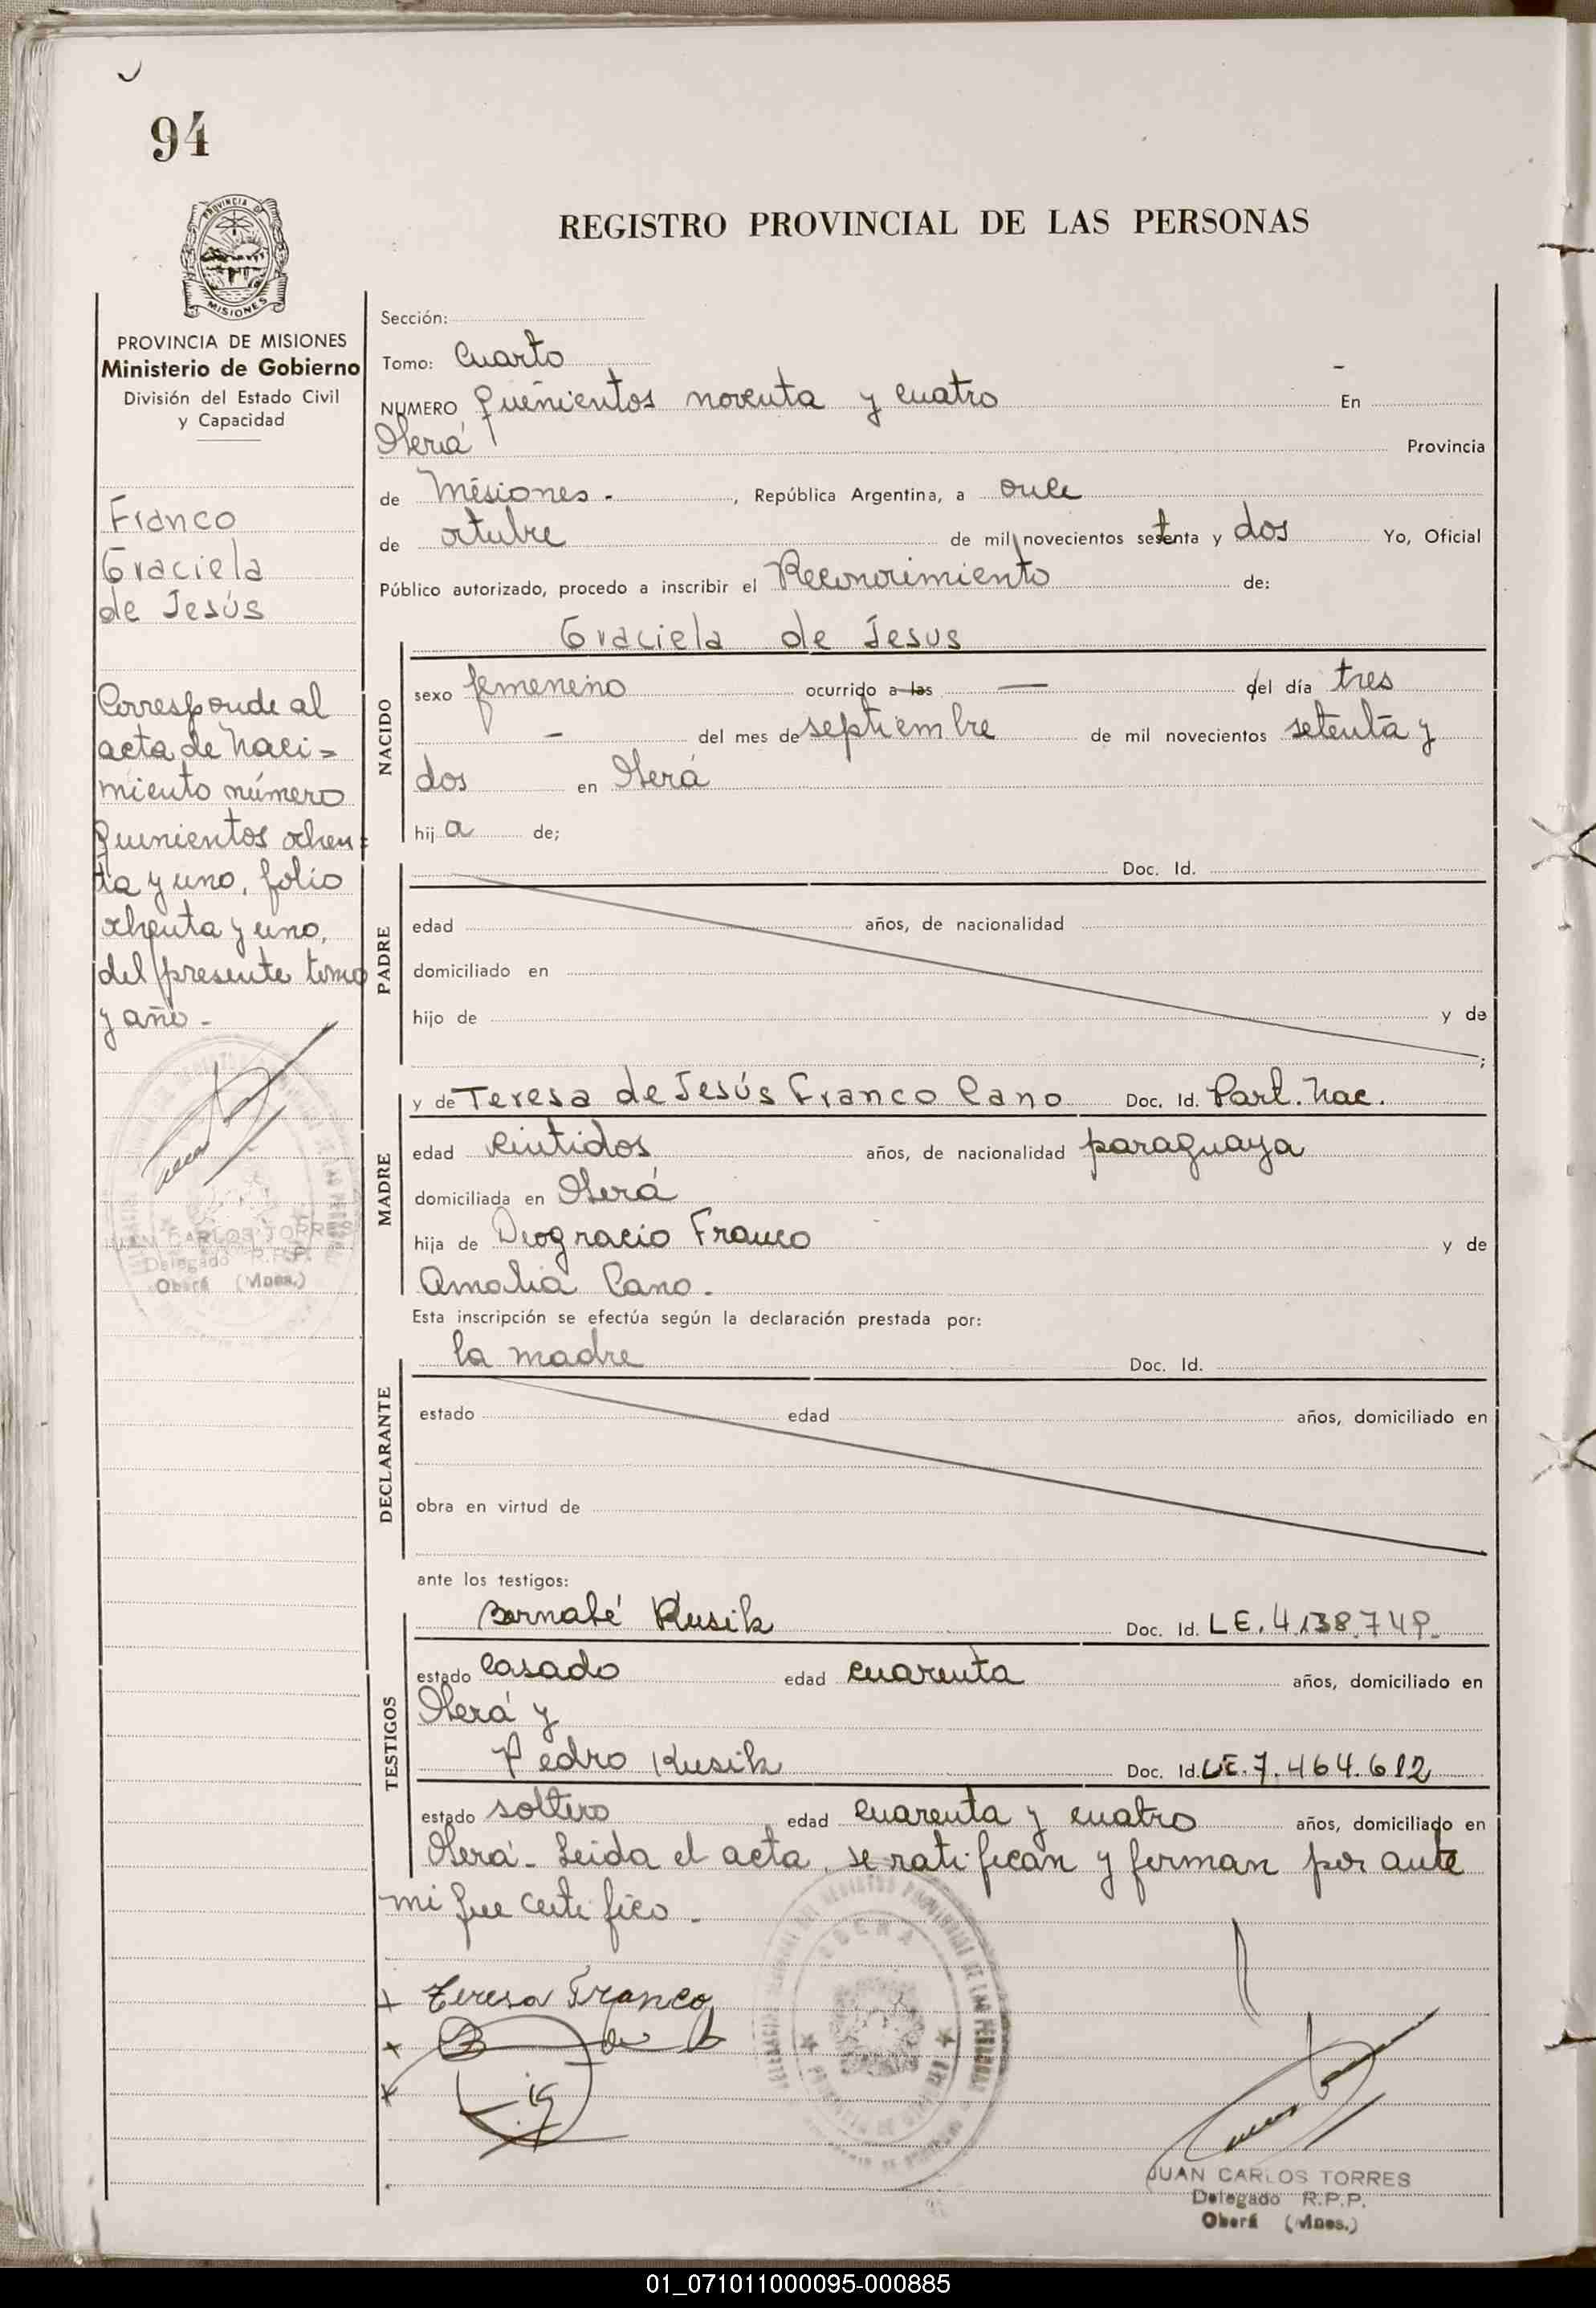 94
REGISTRO PROVINCIAL DE LAS PERSONAS
PROVINCIA DE
MISIONES
PROVINCIA DE MISIONES
Ministerio de Gobierno
División del Estado Civil
y Capacidad
Franco
Graciela
de Jesús
Corresponde al
acta de naci=
miento número
quinientos ochen=
ta y uno, folio
ochenta y uno,
del presente tomo
y año -
JUAN CARLOS TORRES
Delegado R.P.P.
Oberá (Mnes.)
Sección:
Tomo: Cuarto
NUMERO quinientos noventa y cuatro - En
Oberá Provincia
de Misiones - , República Argentina, a once
de octubre de mil novecientos setenta y dos Yo, Oficial
Público autorizado, procedo a inscribir el Reconocimiento de:
Graciela de Jesus
NACIDO
sexo femenino ocurrido a las — del día tres
- del mes de septiembre de mil novecientos setenta y
dos en Oberá
hij a de;
PADRE
Doc. Id.
edad años, de nacionalidad
domiciliado en
hijo de y de
;
MADRE
y de Teresa de Jesús Franco Cano Doc. Id. Part. Nac.
edad veintidos años, de nacionalidad paraguaya
domiciliada en Oberá
hija de Deogracio Franco y de
Amalia Cano.
Esta inscripción se efectúa según la declaración prestada por:
DECLARANTE
la madre Doc. Id.
estado edad años, domiciliado en
obra en virtud de
ante los testigos:
TESTIGOS
Bernabé Kusik Doc. Id. L E. 4.138.749.
estado Casado edad cuarenta años, domiciliado en
Oberá y
Pedro Kusik Doc. Id. L E. 7.464.612
estado soltero edad cuarenta y cuatro años, domiciliado en
Oberá - Leida el acta, se ratifican y firman por ante
mi que certifico -
Teresa Franco
OBERA
JUAN CARLOS TORRES
Delegado R.P.P.
Oberá (Mnes.)
01_071011000095-000885